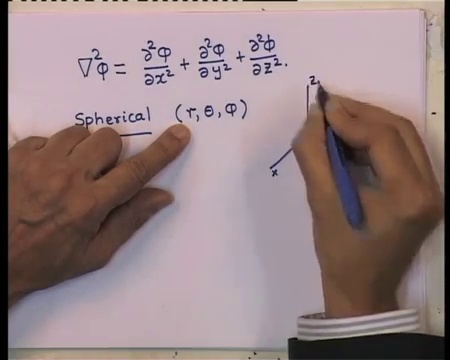 ∇²φ = ∂²φ/∂x² + ∂²φ/∂y² + ∂²φ/∂z².
Spherical (r, θ, φ)
z
x